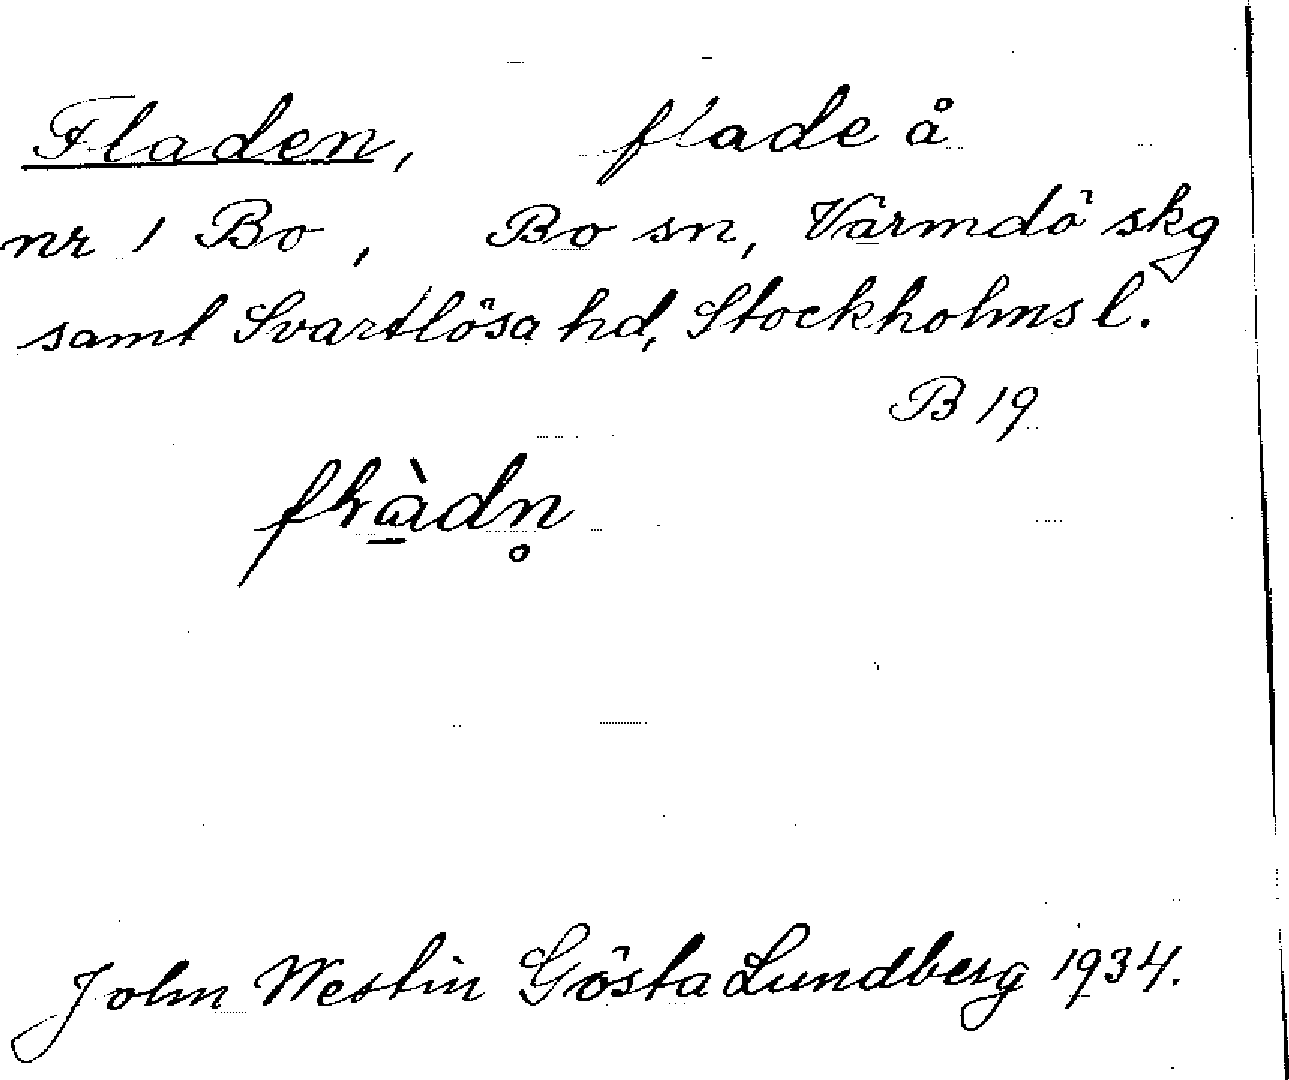 Fladen, flade å
nr 1 Bo, Bo sn, Värmdö skg
samt Svartlösa hd, Stockholms l.
B 19
John Westin Gösta Lundberg 1934.